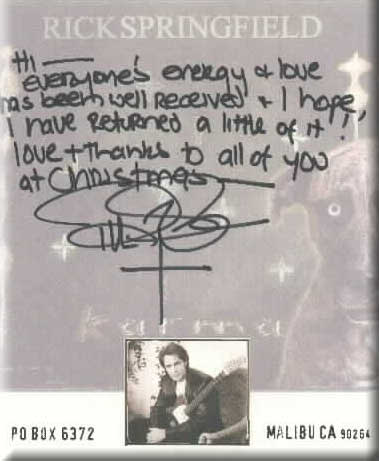 RICK SPRINGFIELD
Hi —
everyone's energy & love
has been well received & I hope,
I have returned a little of it!
love + thanks to all of you
at Christmas
Karma
PO BOX 6372
MALIBU CA 90264